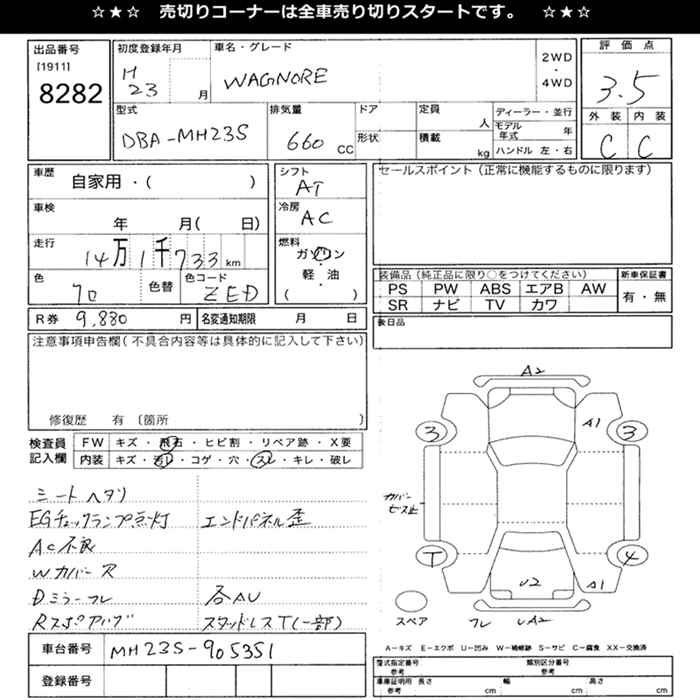 ☆★☆ 売切りコーナーは全車売り切りスタートです。 ☆★☆
出品番号
[1911]
8282
初度登録年月
H
23 月
車名・グレード
WAGNORE
2WD
・
4WD
評価点
3.5
外装 内装
C C
型式
DBA-MH23S
排気量
660 CC
ドア
形状
定員
人
積載
kg
ディーラー・並行
モデル年式 年
ハンドル 左・右
車歴
自家用・( )
車検
年 月( 日)
走行
14万1千733km
色
70
色替
色コード
ZED
シフト
AT
冷房
AC
燃料
ガソリン
・
軽・油
・
( )
セールスポイント(正常に機能するものに限ります)
装備品(純正品に限り○をつけてください)
PS PW ABS エアB AW
SR ナビ TV カワ
新車保証書
有・無
R券 9,880 円
名変通知期限 月 日
後日品
注意事項申告欄(不具合内容等は具体的に記入して下さい)
修復歴 有〔箇所
検査員
記入欄
FW キズ・飛石・ヒビ割・リペア跡・X要
内装 キズ・汚レ・コゲ・穴・スレ・キレ・破レ
シートヘタリ
EGチェックランプ点灯 エンドパネル歪
AC不良
WカバーR
Dミラーフレ 各AU
スタッドレスT(一部)
A2
A1
3 3
カバー
T 4
U2
A1
スペア
フレ UA2
A-キズ E-エクボ U-凹み W-補修跡 S-サビ C-腐食 XX-交換済
車台番号 MH23S-905351
登録番号
型式指定番号
参考
類別区分番号
参考
車庫証明用 長さ
参考 cm
幅
cm
高さ
cm